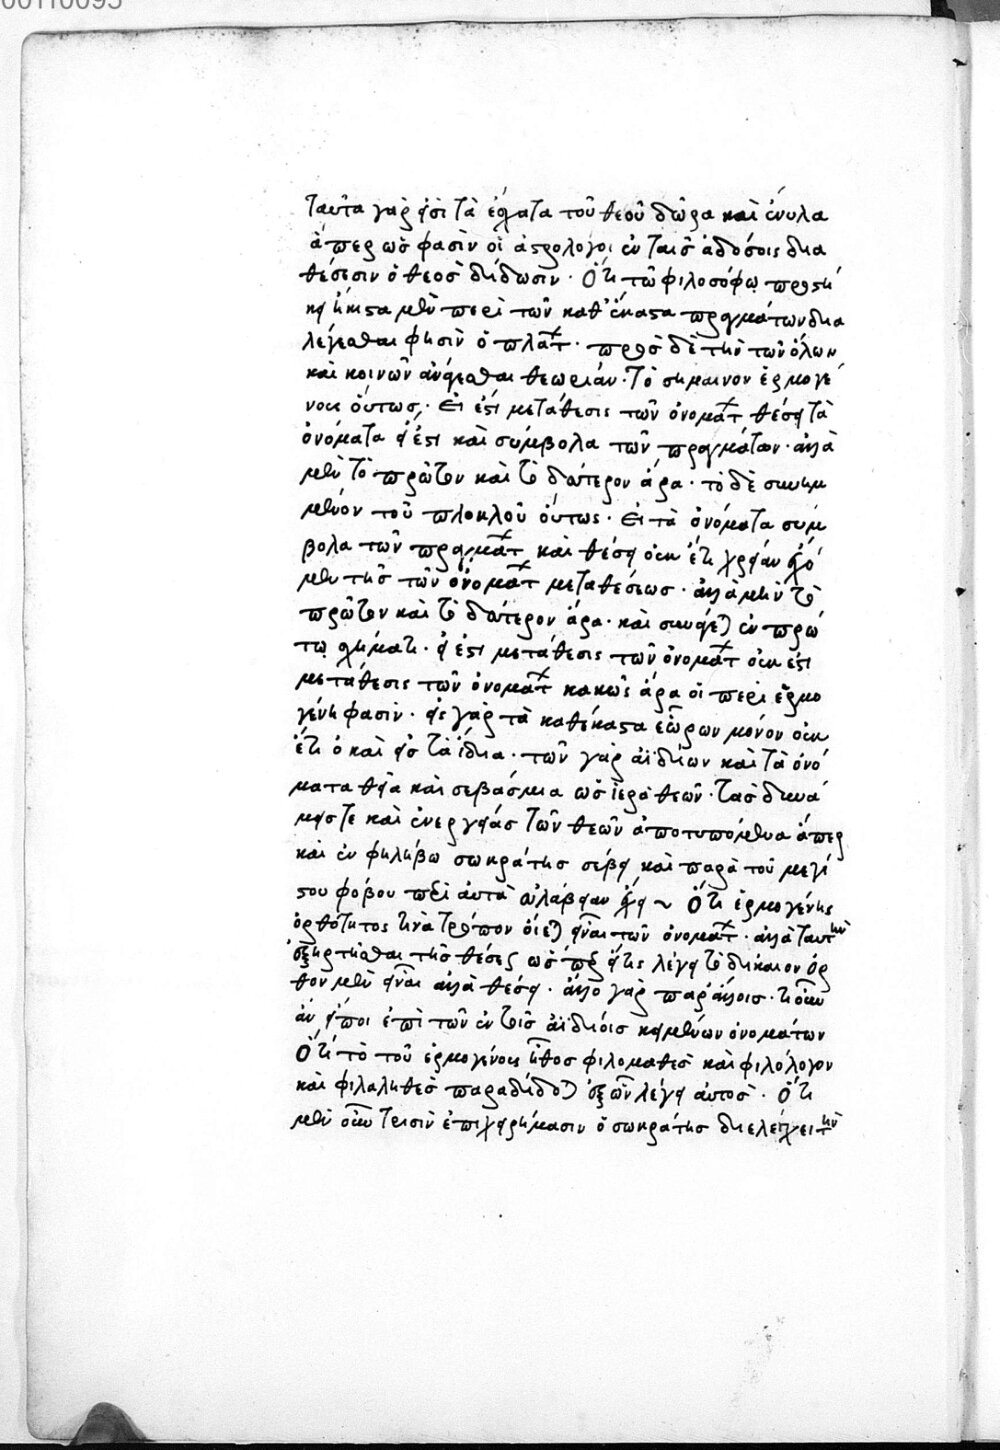 00110093
ταῦτα γάρ εἰσι τὰ ἔσχατα τοῦ θεοῦ δῶρα καὶ ἔνυλα
ἅπερ ὥς φασὶν οἱ ἀστρολόγοι ἐν ταῖς ἀδόξοις δια
θέσεσιν ὁ θεὸς δίδωσιν. Ὅτι τῷ φιλοσόφῳ προσή
κει ἥκιστα μὲν περὶ τῶν καθ' ἕκαστα πραγμάτων δια
λέγεσθαι φησὶν ὁ πλάτ. πρὸς δὲ τὴν τῶν ὅλων
καὶ κοινῶν ἀνάγεσθαι θεωρίαν. Τὸ σημαῖνον ἑρμογέ
νους οὕτως. Εἰ ἔστι μετάθεσις τῶν ὀνομάτ θέσει τὰ
ὀνόματα εἰ ἔστι καὶ σύμβολα τῶν πραγμάτων. ἀλλὰ
μὲν τὸ πρῶτον καὶ τὸ δεύτερον ἄρα. τὸ δὲ συνημ
μένον τοῦ πλοκλοῦ οὕτως. Εἰ τὰ ὀνόματα σύμ
βολα τῶν πραγμάτ καὶ θέσει οὐκ ἔτι χρείαν ἔχο
μεν τῆς τῶν ὀνομάτ μεταθέσεως. ἀλλὰ μὴν τὸ
πρῶτον καὶ τὸ δεύτερον ἄρα. καὶ συνάγεται ἐν πρώ
τῳ σχήματι. εἰ ἔστι μετάθεσις τῶν ὀνομάτ οὐκ ἔστι
μετάθεσις τῶν ὀνομάτ κακῶς ἄρα οἱ περὶ ἑρμο
γένη φασίν. εἰς γὰρ τὰ καθέκαστα ἑώρων μόνον οὐκ
ἔτι δ καὶ εἰς τὰ ἀίδια. τῶν γὰρ ἀϊδίων καὶ τὰ ὀνό
ματα θεῖα καὶ σεβάσμια ὡς ἱερὰ θεῶν. τὰς δυνά
μεις τε καὶ ἐνεργείας τῶν θεῶν ἀποτυπούμενα ἅπερ
καὶ ἐν φιλήβω σωκράτης σέβει καὶ παρὰ τοῦ μεγί
στου φόβου περὶ αὐτὰ εὐλάβειαν ἔχει ~ Ὅτι ἑρμογένης
ὀρθότητος τινὰ τρόπον οἴεται εἶναι τῶν ὀνομάτ. ἀλλὰ ταύτην
ἐξηρτῆσθαι τῆς θέσεως ὡς περ εἴ τις λέγει τὸ δίκαιον ὀρ
θὸν μὲν εἶναι ἀλλὰ θέσει. ἄλλο γὰρ παρ' ἄλλοις. τί οὖν
ἂν εἴποι ἐπὶ τῶν ἐν τοῖς ἀϊδίοις κειμένων ὀνομάτων
Ὅτι τὸ τοῦ ἑρμογένους ἦθος φιλομαθὲς καὶ φιλόλογον
καὶ φιλάληθες παραδίδοται ἐξ ὧν λέγει αὐτός. Ὅτι
μὲν οὖν τρισὶν ἐπιχειρήμασιν ὁ σωκράτης διελέγχει τὴν